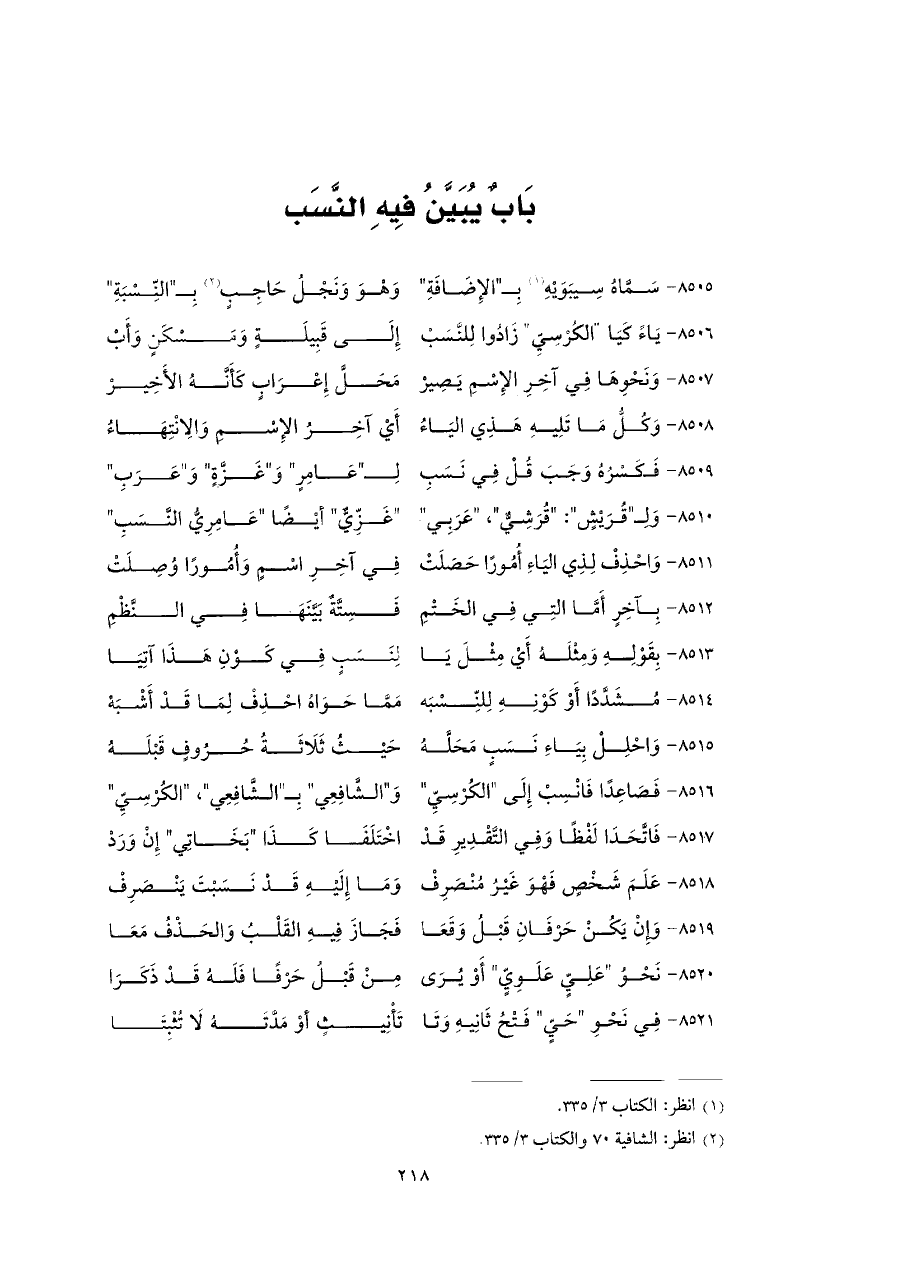 بَابٌ يُبَيَّنُ فِيهِ النَّسَب
٨٥٠٥- سَمَّاهُ سِيبَوَيْهِ(١) بِـ"الإِضَافَةِ" وَهْوَ وَنَجْلُ حَاجِبٍ(٢) بِـ"النِّسْبَةِ"
٨٥٠٦- يَاءً كَيَا "الكُرْسِيِّ" زَادُوا لِلنَّسَبْ إِلَى قَبِيلَةٍ وَمَسْكَنٍ وَأَبْ
٨٥٠٧- وَنَحْوِهَا فِي آخِرِ الإِسْمِ يَصِيرْ مَحَلَّ إِعْرَابٍ كَأَنَّهُ الأَخِيرْ
٨٥٠٨- وَكُلُّ مَا تَلِيهِ هَذِي اليَاءُ أَيْ آخِرُ الإِسْمِ وَالِانْتِهَاءُ
٨٥٠٩- فَكَسْرُهُ وَجَبَ قُلْ فِي نَسَبِ لِـ"عَامِرٍ" وَ"غَزَّةٍ" وَ"عَرَبِ"
٨٥١٠- وَلِـ"قُرَيْشٍ": "قُرَشِيٌّ"، "عَرَبِي" "غَزِّيٌّ" أَيْضًا "عَامِرِيُّ النَّسَبِ"
٨٥١١- وَاحْذِفْ لِذِي اليَاءِ أُمُورًا حَصَلَتْ فِي آخِرِ اسْمٍ وَأُمُورًا وُصِلَتْ
٨٥١٢- بِآخِرٍ أَمَّا التِي فِي الخَتْمِ فَسِتَّةٌ بَيَّنَهَا فِي النَّظْمِ
٨٥١٣- بِقَوْلِهِ وَمِثْلَهُ أَيْ مِثْلَ يَا لِنَسَبٍ فِي كَوْنِ هَذَا آتِيَا
٨٥١٤- مُشَدَّدًا أَوْ كَوْنِهِ لِلنِّسْبَه مِمَّا حَوَاهُ احْذِفْ لِمَا قَدْ أَشْبَهْ
٨٥١٥- وَاحْلِلْ بِيَاءِ نَسَبٍ مَحَلَّهُ حَيْثُ ثَلَاثَةُ حُرُوفٍ قَبْلَهُ
٨٥١٦- فَصَاعِدًا فَانْسِبْ إِلَى "الكُرْسِيِّ" وَ"الشَّافِعِي" بِـ"الشَّافِعِي"، "الكُرْسِيِّ"
٨٥١٧- فَاتَّحَدَا لَفْظًا وَفِي التَّقْدِيرِ قَدْ اخْتَلَفَا كَذَا "بَخَاتِي" إِنْ وَرَدْ
٨٥١٨- عَلَمَ شَخْصٍ فَهْوَ غَيْرُ مُنْصَرِفْ وَمَا إِلَيْهِ قَدْ نَسَبْتَ يَنْصَرِفْ
٨٥١٩- وَإِنْ يَكُنْ حَرْفَانِ قَبْلُ وَقَعَا فَجَازَ فِيهِ القَلْبُ وَالحَذْفُ مَعَا
٨٥٢٠- نَحْوُ "عَلِيٍّ عَلَوِيٍّ" أَوْ يُرَى مِنْ قَبْلُ حَرْفًا فَلَهُ قَدْ ذَكَرَا
٨٥٢١- فِي نَحْوِ "حَيٍّ" فَتْحُ ثَانِيهِ وَتَا تَأْنِيثٍ أَوْ مَدَّتَهُ لَا تُثْبِتَا
(١) انظر: الكتاب ٣/ ٣٣٥.
(٢) انظر: الشافية ٧٠ والكتاب ٣/ ٣٣٥.
٢١٨